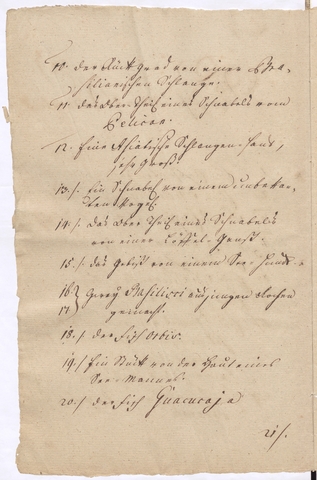 10. der Rück grad von einer Bra-
silianischen Schlange.
11. das Ober Theil eines Schnabels vom
Pelican.
12. Eine Asiatische Schlangen-Haut,
sehr Groß.
13./. Ein Schnabel von einem unbekan-
ten Vogel.
14./. das Ober Theil eines Schnabels
von einer Löffel-Ganß.
15./. das Gebiß von einem See-Hund.
16} Zwey Basilisci aus jungen Rochen
17} gemacht.
18./ der Fisch Orbis.
19./ Ein Stück von der Haut eines
See-Mannes.
20./ der Fisch Guacucaja
21/.